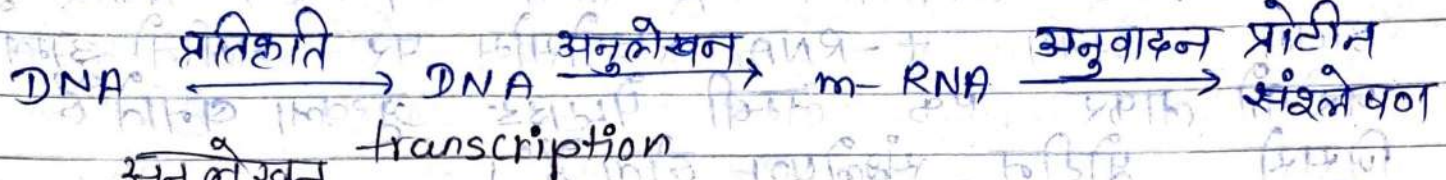 DNA प्रतिकृति → DNA अनुलेखन → m- RNA अनुवादन → प्रोटीन संश्लेषण
transcription